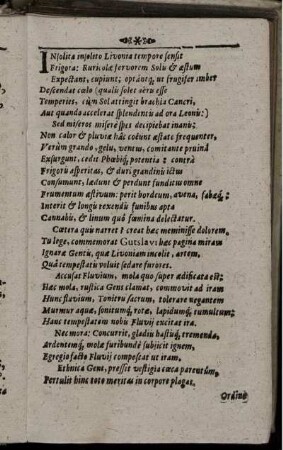 INsolita insolito Livonia tempore sensit
Frigora: Ruricolæ fervorem Solis & æstum
Expectant, cupiunt; optántq, ut frugifer imber
Descendat cælo (qualis solet æris esse
Temperies, cùm Sol attingit brachia Cancri,
Aut quando accelerat splendentis ad ora Leonis:)
Sed miseros miserè spes decipiebat inanis:
Non calor & pluviæ hâc coëunt æstate frequenter,
Verùm grando, gelu, ventus, comitante pruinâ
Exsurgunt, cedit Phœbiq, potentia: contrà
Frigoris asperitas, & duri grandinis ictus
Consumunt, lædunt & perdunt funditus omne
Frumentum æstivum: perit hordeum, avena, fabæq,;
Interit & longis texendis funibus apta
Cannabis, & linum quô fœmina delectatur.
Cætera quis narret? creat hæc meminisse dolorem.
Tu lege, commemorat Gutslavi hæc pagina miram
Ignaræ Gentis, quæ Livoniam incolit, artem,
Quâ tempestatis voluit sedare furores.
Accusat Fluvium, mola quô super ædificata est;
Hæc mola, rustica Gens clamat, commovit ad iram
Hunc fluvium, Tonitru sacrum, tolerare negantem
Murmur aquæ, sonitumq, rotæ, lapidumq, tumultum;
Hanc tempestatem nobis Fluvij excitat ira.
Nec mora: Concurrit, gladiis fustisq, tremenda,
Ardentemq, molæ furibundè subjicit ignem,
Egregio facto Fluvij compescat ut iram.
Ethnica Gens, pressit vestigia cæca parentum,
Pertulit hinc toto meritas in corpore plagas.
Ordine